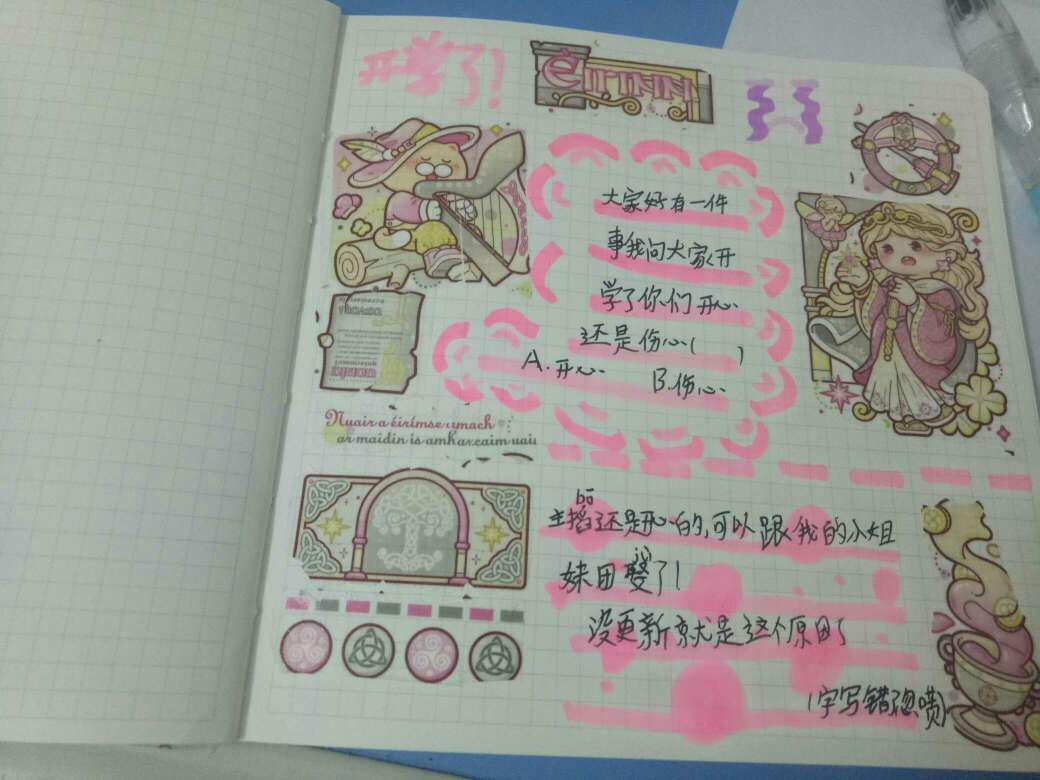 开学了!
ÉIRINN
大家好有一件
事我问大家开
学了你们开心
还是伤心( )
A.开心 B.伤心
Nuair a éirímse umach
ar maidin is amharcaim
bō
主播还是开心的,可以跟我的小姐
妹团聚了!
没更新就是这个原因了
(字写错忽喷)